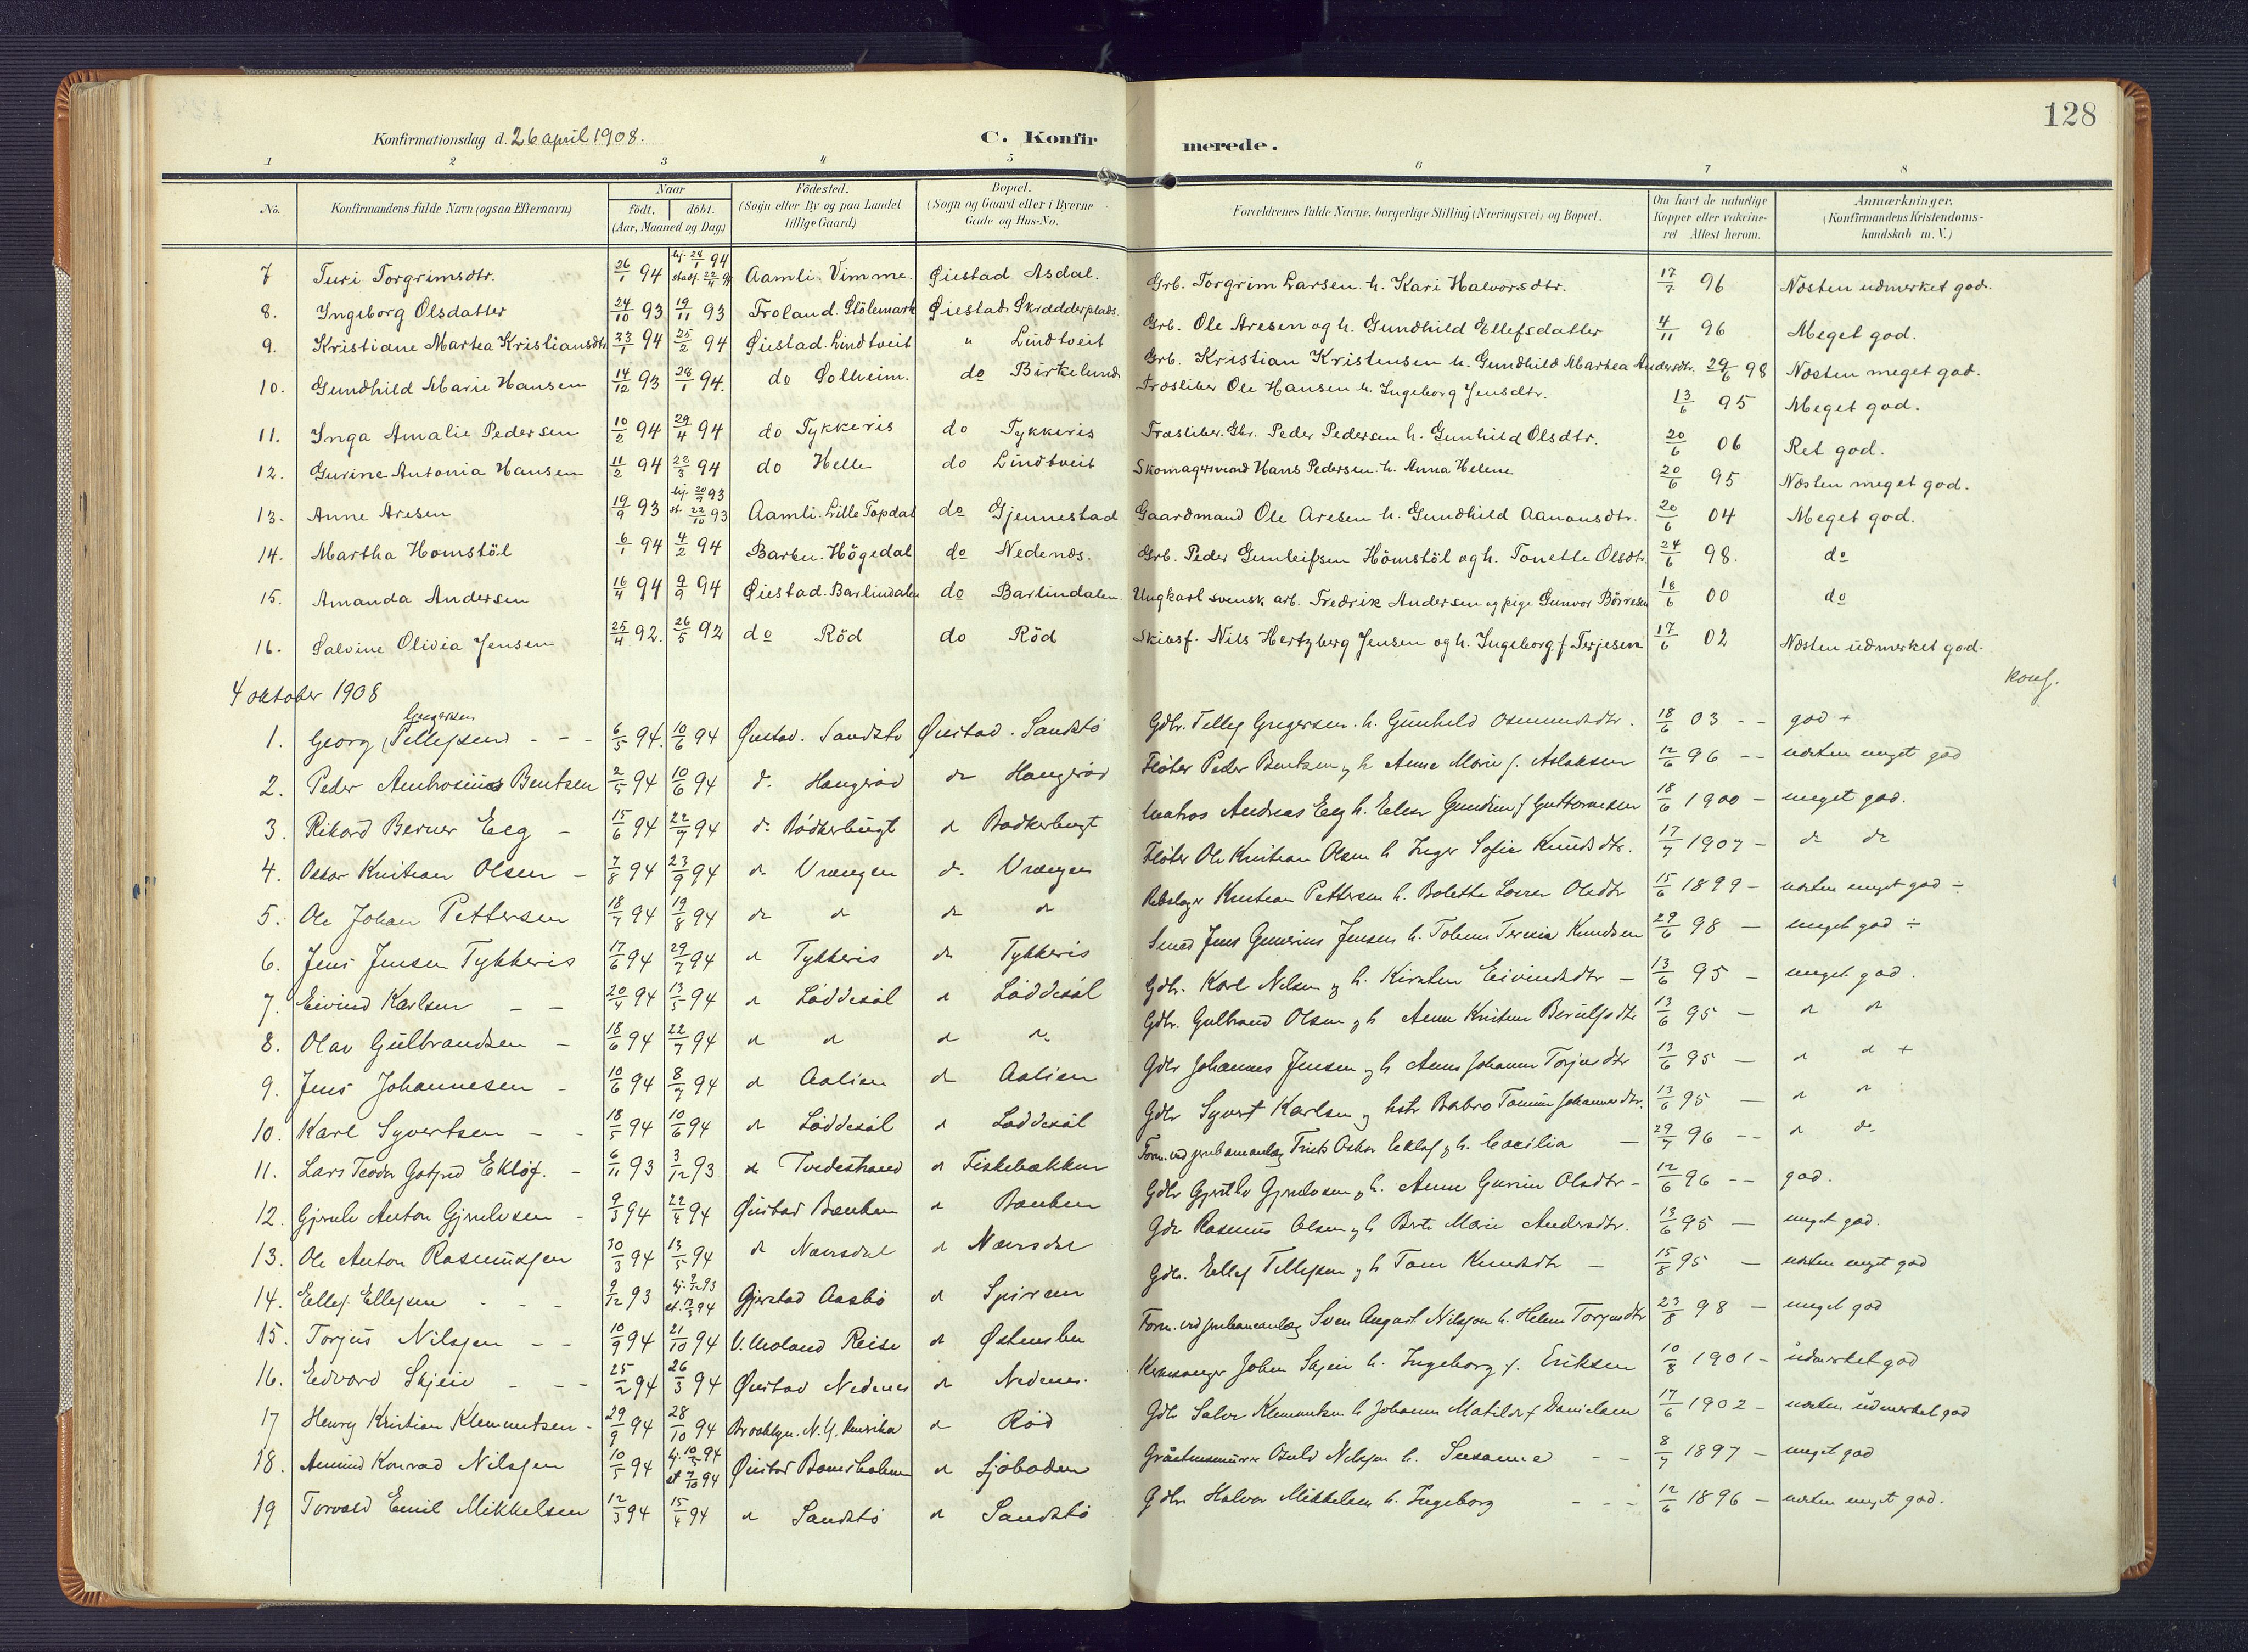 128
Konfirmationsdag d. 26 april 1908. C. Konfir merede.
1 2 3 4 5 6 7 8
No. Konfirmandens fulde Navn (ogsaa Efternavn) Naar födt. döbt. (Aar, Maaned og Dag) Födested. (Sogn eller By og paa Landet tillige Gaard) Bopæl. (Sogn og Gaard eller i Byerne Gade og Hus-No. Forældrenes fulde Navne, borgerlige Stilling (Næringsvei) og Bopæl. Om havt de naturlige Kopper eller vakcineret Attest herom. Anmærkninger. (Konfirmandens Kristendomskundskab m. V.)
7 Turi Torgrimsdtr. 26/1 94 hj. 28/1 94 stadf. 22/4 94 Aamli. Vimme. Øiestad Asdal. Grb. Torgrim Larsen h. Kari Halvorsdtr. 17/7 96 Næsten udmerket god.
8. Ingeborg Olsdatter 24/10 93 19/11 93 Froland. Stölemark Øiestad Skrædderplads Grb. Ole Aresen og h. Gundhild Ellefsdatter 4/11 96 Meget god.
9. Kristiane Martea Kristiansdtr 23/1 94 25/2 94 Øiestad. Lindtveit " Lindtveit Grb. Kristian Kristensen h. Gundhild Martea Andersdtr. 29/6 98 Næsten meget god.
10. Gundhild Marie Hansen 14/12 93 28/1 94. do Solheim. do Birkelund Træsliber Ole Hansen h. Ingeborg Jensdtr. 13/6 95 Meget god.
11. Inga Amalie Pedersen 10/2 94 29/4 94 do Tykkeris do Tykkeris Træsliber. Gbr. Peder Pedersen h. Gunhild Olsdtr. 20/6 06 Ret god.
12. Gurine Antonia Hansen 11/2 94 22/3 94 do Helle do Lindtveit Skomagersvend Hans Pedersen. h. Anna Helene 20/6 95 Næsten meget god.
13. Anne Aresen 19/9 93 hj. 20/9 93 st. 22/10 93 Aamli. Lille Topdal do Gjennestad Gaardmand Ole Aresen h. Gundhild Aanonsdtr. 20/6 04 Meget god.
14. Martha Homstöl 6/1 94 4/2 94 Barbu. Högedal do Nedenæs. Grb. Peder Gunleifsen Hömstöl og h. Tonette Olsdtr. 24/6 98. do
15. Amanda Andersen 16/4 94 9/9 94 Øiestad. Barlindalen do Barlindalen. Ungkarl svensk arb. Fredrik Andersen og pige Gunvor Börresen 18/6 00 do
16. Salvine Olivia Jensen 25/4 92. 26/5 92 do Röd do Röd Skibsf. Nils Hertzberg Jensen og h. Ingeborg f Terjesen 17/6 02 Næsten udmerket god.
konf.
4 oktober 1908
Gregersen
1. Georg (Tellefsen) - - - 6/5 94. 10/6 94 Øiestad. Sandstö Øiestad. Sandstö Gdbr. Tellef Gregersen. h. Gunhild Osmundsdtr. 18/6 03 - - god +
2. Peder Ambrosius Bentsen 2/5 94 10/6 94 do Haugeröd do Haugeröd Fløter Peder Bentsen og h Anne Marie f. Aslaksen 12/6 96 -- næsten meget god
3. Rikard Berner Eeg - 15/6 94 22/7 94 do Bödkerbugt do Bödkerbugt Matros Andreas Eeg h. Elen Gundine f Guttormsen 18/6 1900 - meget god.
4. Oskar Kristian Olsen - 7/8 94 23/9 94 do Vrængen do Vrængen Fløter Ole Kristian Olsen h Inger Sofie Knudsdtr. 17/7 1907 - do do
5. Ole Johan Pettersen 18/7 94 19/8 94 do do do do Rebslager Kristian Pettersen h. Bolette Lovise Olsdtr 15/6 1899 - næsten meget god ÷
6. Jens Jensen Tykkeris 17/6 94 29/7 94 do Tykkeris do Tykkeris Smed Jens Jensen h. Tomine Teresia Knudsen 29/6 98 - meget god ÷
7. Eivind Karlsen - - 20/4 94 13/5 94 do Löddesöl do Löddesöl Gdbr. Karl Nilsen og h. Kirsten Eivindsdtr - 13/6 95 - meget god.
8. Olav Gulbrandsen - 18/6 94 22/7 94 do do do do Gdbr. Gulbrand Olsen og h Anne Kristine Berulfsdtr 13/6 95 - do do
9. Jens Johannesen - 10/6 94 8/7 94 do Aalien do Aalien Gdbr Johannes Jensen og h Anne Johanne Torjusdtr 13/6 95 - do do +
10. Karl Syvertsen - - 18/5 94 10/6 94 do Löddesöl do Löddesöl Gdbr Syvert Karlsen og hstr Barbro Tomine Johannesdtr. 13/6 95 - do do
11. Lars Teodor Gotfred Eklöf. - 6/11 93 3/12 93 do Tvedestrand do Fiskebækken Form. ved jernbaneanlæg Frits Oskar Eklöf og h. Cecilia - 29/7 96 -- do do
12. Gjerulv Anton Gjerulvsen - 9/3 94 22/4 94 Øiestad Bænken do Bænken Gdbr Gjerulv Gjerulvsen og h. Anne Gurine Olsdtr - 12/6 96 -- god.
13. Ole Anton Rasmussen 30/3 94 13/5 94 do Næversdal do Næversdal Gdbr Rasmus Olsen og h Berte Marie Andersdtr. 13/6 95 - meget god.
14. Ellef. Ellefsen - - - 9/12 93 hj. 9/12 93 st. 94 Gjerstad Aasbö do Spiren Gdbr. Ellef Tellefsen og h Tone Knudsdtr - 15/8 95 - næsten meget god
15. Torjus Nilsson - - 10/9 94 21/10 94 V. Moland Reise do Østensbu Form. ved jernbaneanlæg Sven August Nilsson h. Helene Torjusdtr 23/8 98 - meget god
16. Edvard Skjeie - - - 25/2 94 26/3 94 Øiestad Nedenes do Nedenes. Kirkesanger Johan Skjeie h. Ingeborg f. Eriksen 10/8 1901 - udmerket god
17 Henry Kristian Klemmetsen - 29/9 94 28/10 94 Brooklyn. N. Y. Amerika do Röd Gdbr Salve Klemmetsen h Johanne Matilde f Danielsen 17/6 1902 - næsten udmerket god
18. Amund Konrad Nilssen 10/5 94 hj. 10/5 94 st 7/10 94 Øiestad Bomsholmen do Sjöboden Gråstensmurer Osuld Nilssen h. Susanne - - 8/7 1897 - meget god
19 Torvald Emil Mikkelsen 12/3 94 15/4 94 do Sandstö do Sandstö Gdbr. Halvor Mikkelsen h. Ingeborg - - - 12/6 1896 - næsten meget god.